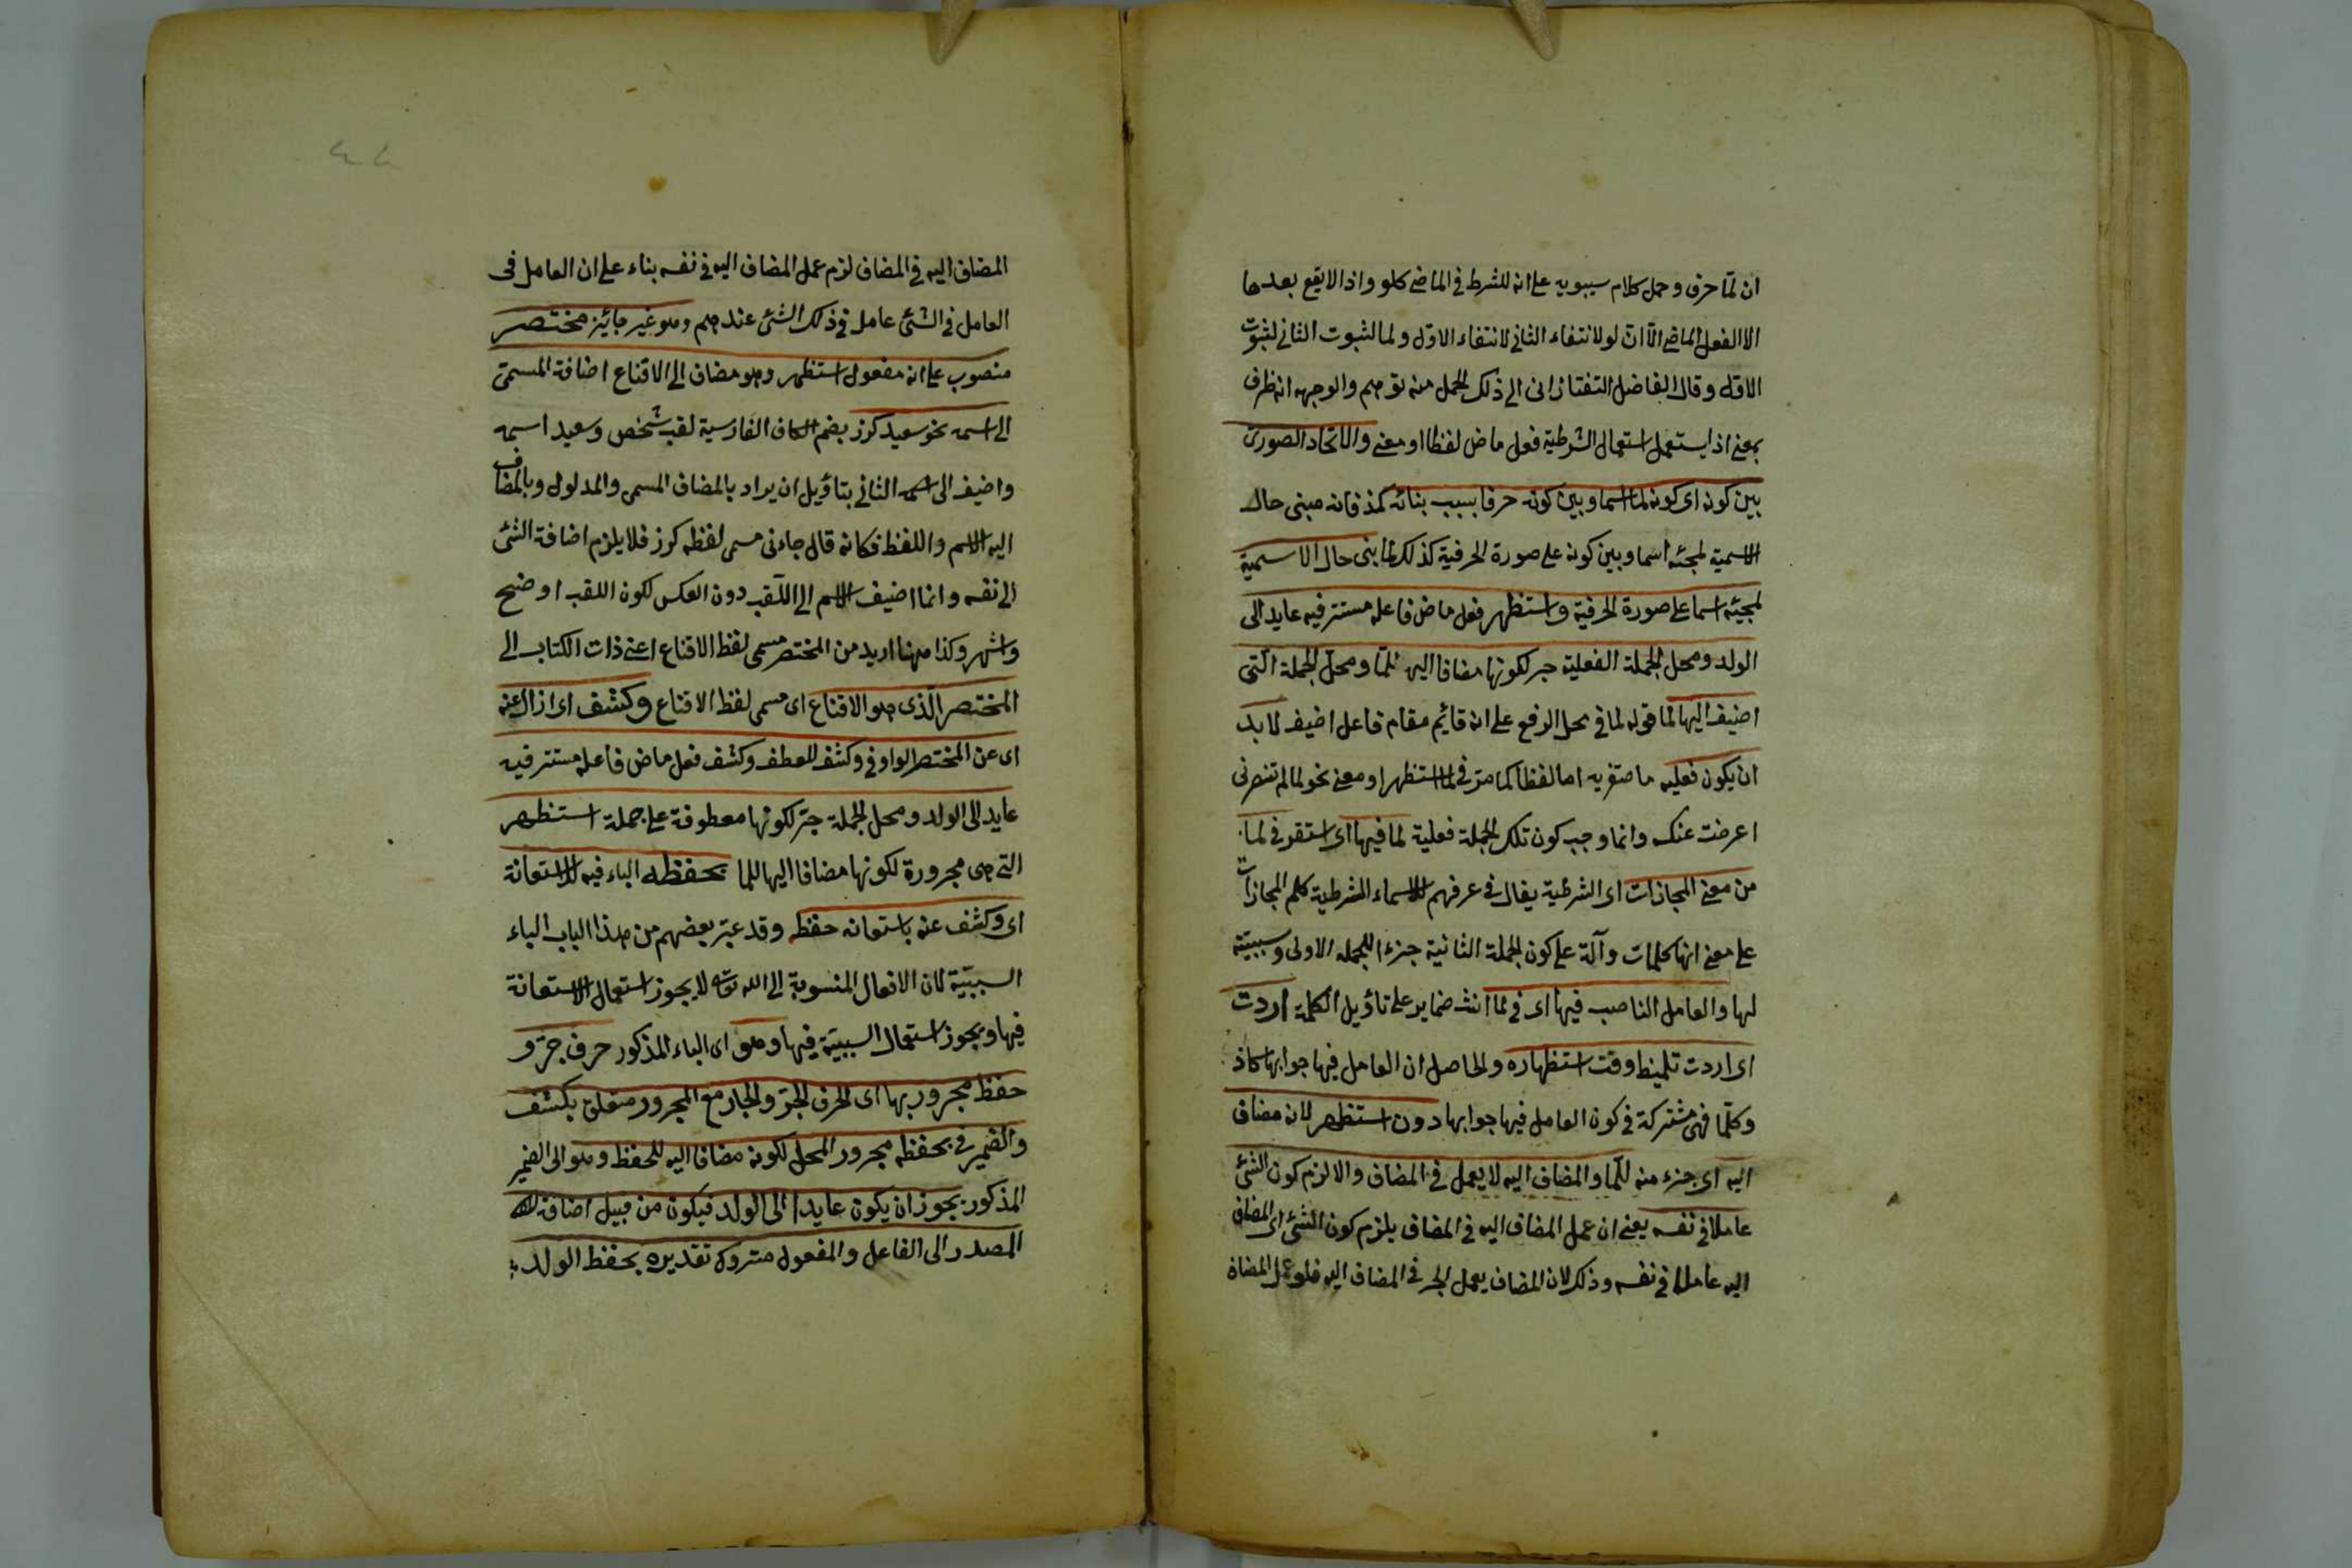 ان لمّا حرف وحمل كلام سيبويه على انه للشرط فى الماضى كلو واذا لا يقع بعدها
الا الفعل الماضى الّا انّ لو لانتفاء الثانى لانتفاء الاوّل ولما لثبوت الثانى لثبوت
الاوّل وقال الفاضل التفتازانى الى ذلك الحمل منه توهم والوجهه انه ظرف
بمعنى اذ يستعمل استعمال الشرطية فعل ماض لفظا او معنى والاتّحاد الصورى
بين كونه اى كونه لما اسما وبين كونه حرفا بسبب بنائه كمذ فانه مبنى حال
الاسمية لمجيئه اسما وبين كونه على صورة الحرفية كذلك لما بنى حال الاسمية
لمجيئه اسما على صورة الحرفية واستظهر فعل ماض فاعله مستتر فيه عايد الى
الولد ومحل الجملة الفعلية جر لكونها مضافا اليه للمّا ومحلّ الجملة الّتى
اضيف اليها لما قوله لما فى محل الرفع على انه قائيم مقام فاعل اضيف لا بد
ان يكون فعليه ماضويه اما لفظا كما مرّ فى لما استظهر او معنى نحو لما لم تنصرنى
اعرضت عنك وانما وجب كون تلك الجملة فعلية لما فيها اى استقر فى لما
من معنى المجازات اى الشرطية يقال فى عرفهم للاسماء الشرطية كلم المجازات
على معنى انها كلمات دآلة على كون الجملة الثانية جزءا للجمله الاولى وسببيّته
لها والعامل الناصب فيها اى فى لما انث ضمايره على تاؤيل الكلمة اردت
اى اردت تلميظا وقت استظهاره والحاصل ان العامل فيها جوابها كاذ
وكلّما فهى مشتركة فى كون العامل فيها جوابها دون استظهر لانه مضاف
اليه اى جزء منه للّما والمضاف اليه لا يعمل فى المضاف والا لزم كون الشئ
عاملا فى نفسه يعنى ان عمل المضاف اليه فى المضاف يلزم كون الشئ اى المضاف
اليه عاملا فى نفسه وذلك لان المضاف يعمل الجر فى المضاف اليه فلو عمل المضاف
المضاف اليه فى المضاف لزم عمل المضاف اليه فى نفسه بناء على ان العامل فى
العامل فى الشئ عامل فى ذلك الشئ عندهم وهو غير جائيز مختصر
منصوب على انه مفعول استظهر وهو مضاف الى الاقناع اضافة المسمّى
الى اسمه نحو سعيد كرز بضم الكاف الفارسية لقب شخص وسعيد اسمه
واضيف الى اسمه الثانى بتاؤيل ان يراد بالمضاف المسمى والمدلول وبالمضاف
اليه الاسم واللفظ فكانه قال جاءنى مسمى لفظه كوز فلا يلزم اضافة الشئ
الى نفسه وانما اضيف الاسم الى اللّقب دون العكس لكون اللقب اوضح
واشهر وكذا ههنا اريد من المختصر مسمى لفظ الاقناع اعنى ذات الكتاب الى
المختصر الّذى هو الاقناع اى مسمى لفظ الاقناع وكشف اى ازال عنه
اى عن المختصر الواو فى وكشف للعطف وكشف فعل ماض فاعله مستتر فيه
عايد الى الولد ومحل الجملة جرّ لكونها معطوفة على جملة استظهر
التى هى مجرورة لكونها مضافا اليها للما بحفظه الباء فيه للاستعانة
اى وكشف عنه باستعانه حفظه وقد عبّر بعضهم من هذا الباب الباء
السببيّة لان الافعال المنسوبة الى الله تعالى لا يجوز استعمال الاستعانة
فيها ويجوز استعمال السببيّة فيها وهو اى الباء المذكور حرف جرّ و
حفظ مجرور بها اى الحرف الجرّ والجار مع المجرور متعلق بكشف
والضمير فى بحفظه مجرور المحل لكونه مضافا اليه للحفظ وهو الى الضمير
المذكور يجوز ان يكون عايدا الى الولد فيكون من قبيل اضافة
المصدر الى الفاعل والمفعول متروك تقديره بحفظ الولد